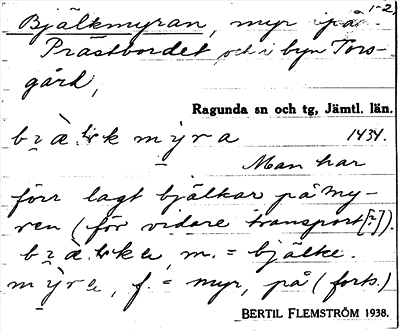 1-2,
Bjälkmyran, myr på
Prästbordet och i byn Tors-
gård,
Ragunda sn och tg, Jämtl. län.
1434.
Man har
förr lagt bjälkar på my-
ren (för vidare transport[?]).
m. = bjälke.
f. = myr, på (forts.)
BERTIL FLEMSTRÖM 1938.